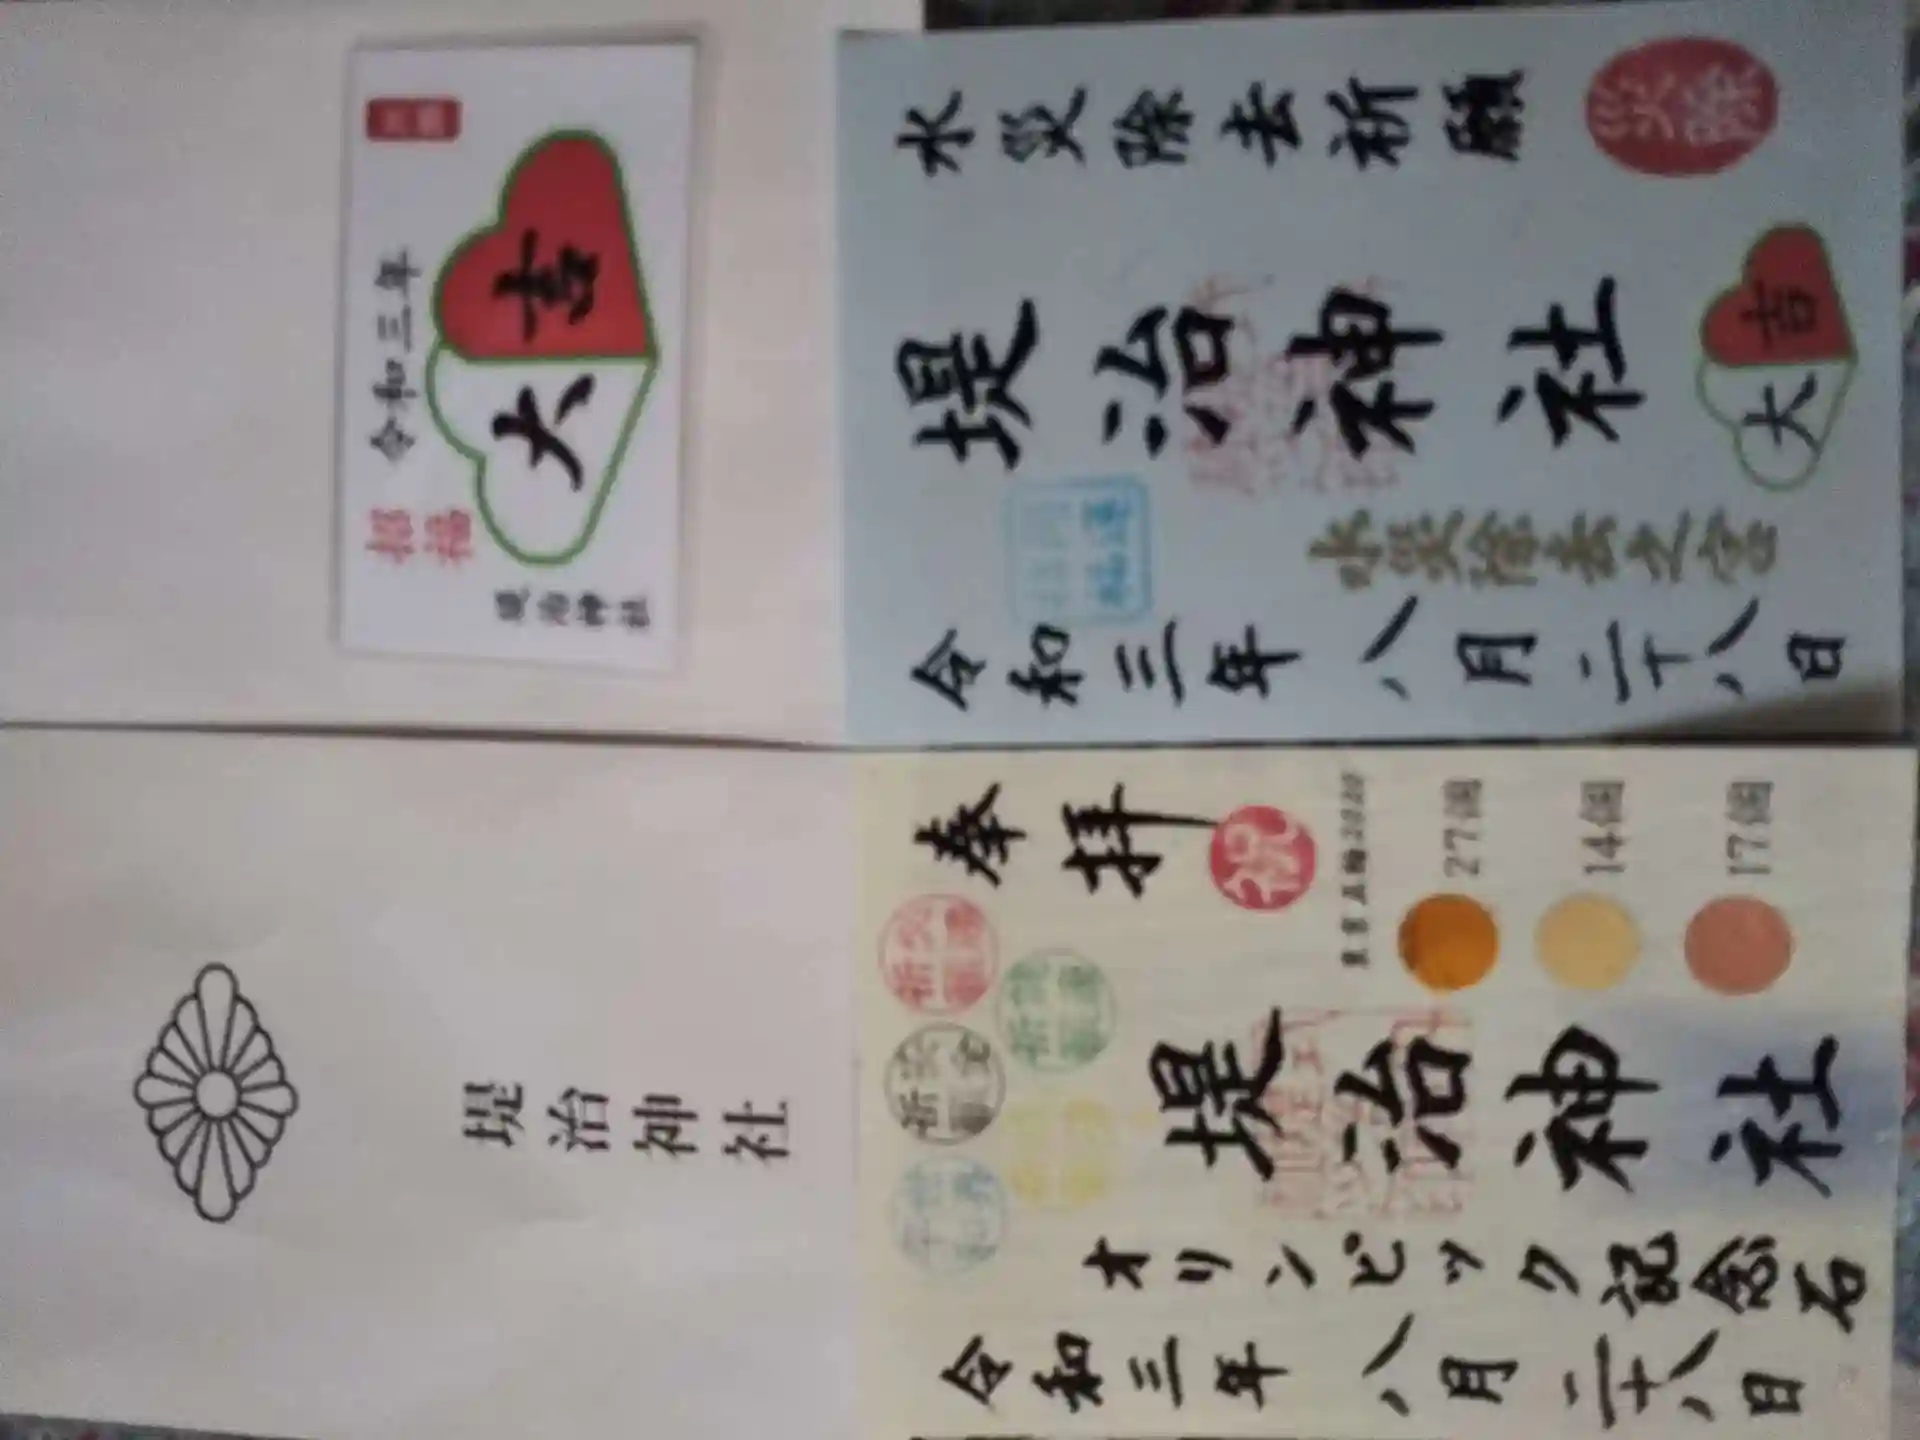 水災除去祈願
災除
堤治神社
大吉
水災除去之宮
令和三年八月二十八日
令和三年
招福
大吉
堤治神社
奉拝
祝
27個
14個
17個
堤治神社
オリンピック記念石
令和三年八月二十八日
堤治神社